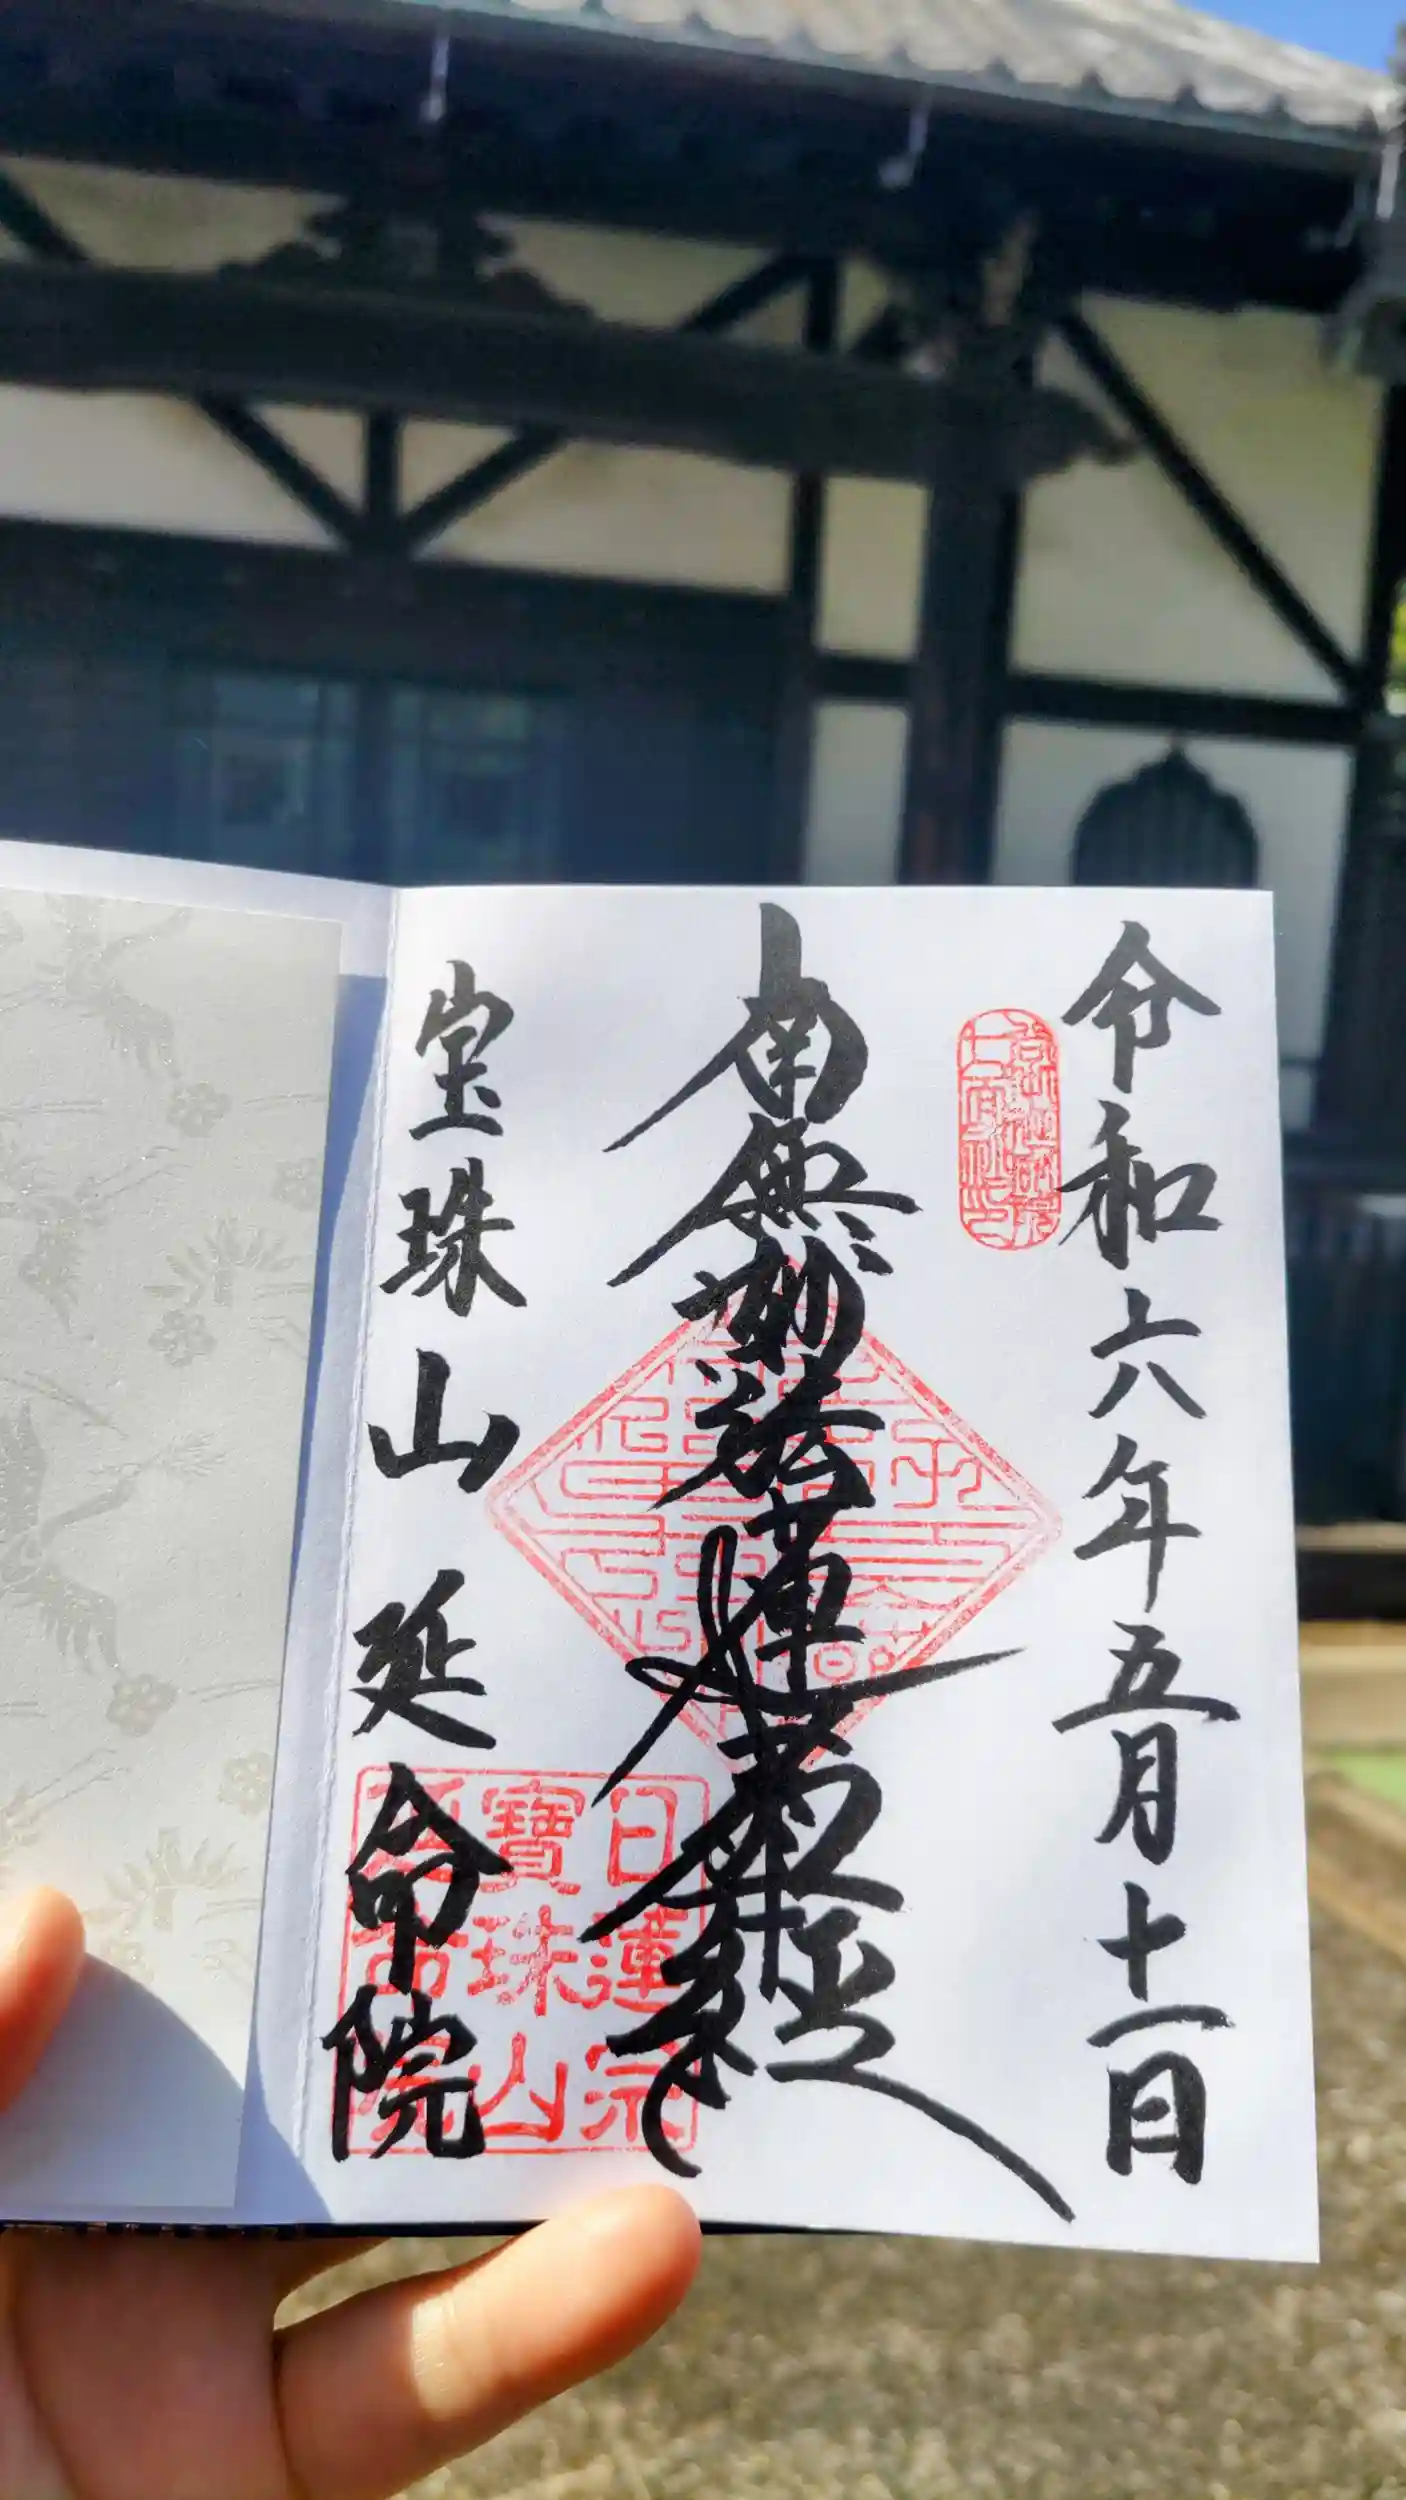 令和六年五月十一日
南無妙法蓮華経
宝珠山 延命院
日蓮宗
寶珠山
延命院